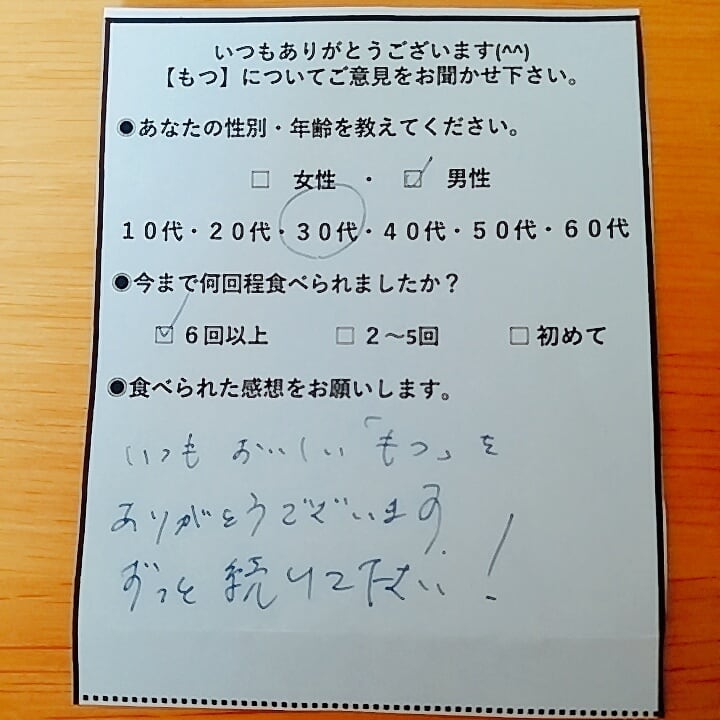 いつもありがとうございます(^^)
【もつ】についてご意見をお聞かせ下さい。
●あなたの性別・年齢を教えてください。
□ 女性 ・ ☑ 男性
10代・20代・30代・40代・50代・60代
●今まで何回程食べられましたか？
☑ 6回以上 □ 2～5回 □ 初めて
●食べられた感想をお願いします。
いつも おいしい「もつ」を
ありがとうございます。
ずっと 続けて下さい！